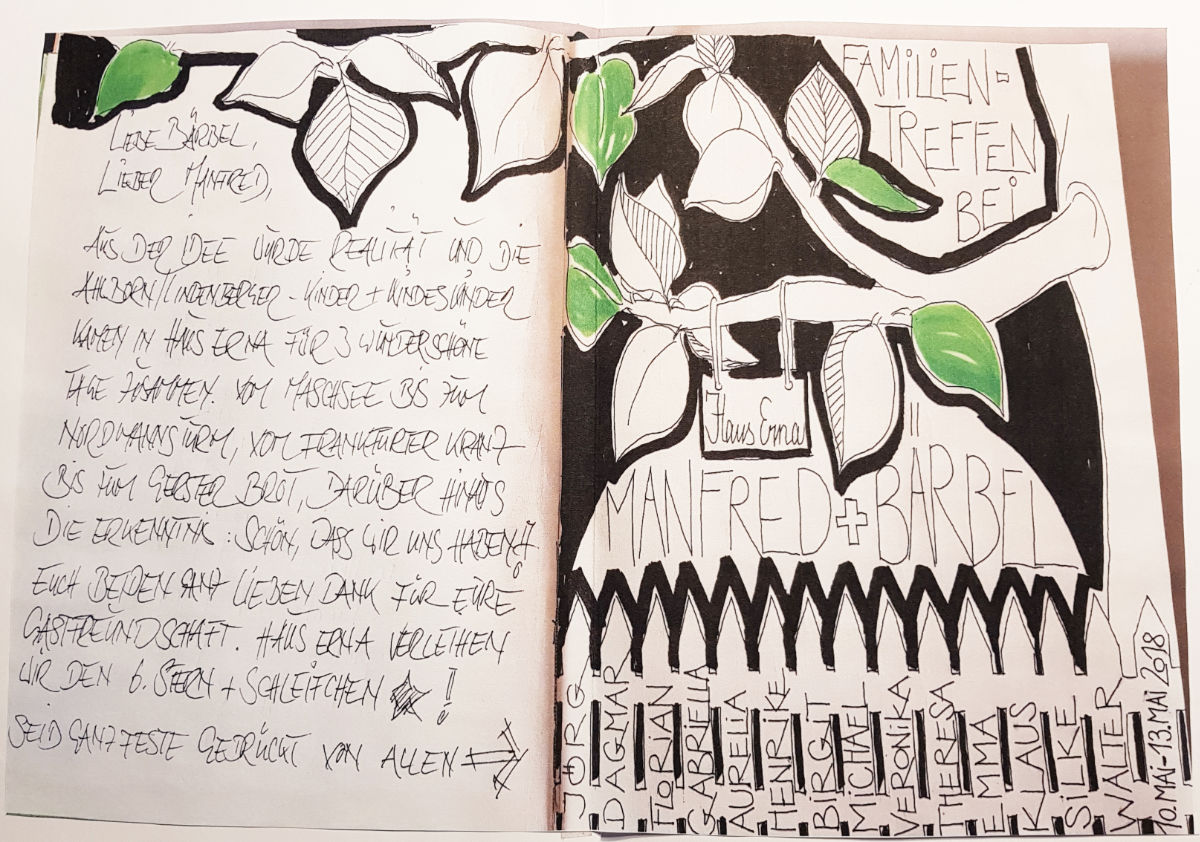 LIEBE BÄRBEL,
LIEBER MANFRED,
AUS DER IDEE WURDE REALITÄT UND DIE
AHLBORN/LINDENBERGER-KINDER + KINDESKINDER
KAMEN IN HAUS ERNA FÜR 3 WUNDERSCHÖNE
TAGE ZUSAMMEN. VOM MASCHSEE BIS ZUM
NORDMANNSTURM, VOM FRANKFURTER KRANZ
BIS ZUM GERSTER BROT, DARÜBER HINAUS
DIE ERKENNTNIS: SCHÖN, DASS WIR UNS HABEN!
EUCH BEIDEN GANZ LIEBEN DANK FÜR EURE
GASTFREUNDSCHAFT. HAUS ERNA VERLEIHEN
WIR DEN 6. STERN + SCHLEIFCHEN !
SEID GANZ FESTE GEDRÜCKT VON ALLEN
FAMILIEN-
TREFFEN
BEI
Haus Erna
MANFRED + BÄRBEL
JÖRG
DAGMAR
FLORIAN
GABRIELLA
AURELIA
HENRIKE
BIRGIT
MICHAEL
VERONIKA
THERESA
EMMA
KLAUS
SILKE
WALTER
10. MAI-13. MAI 2018